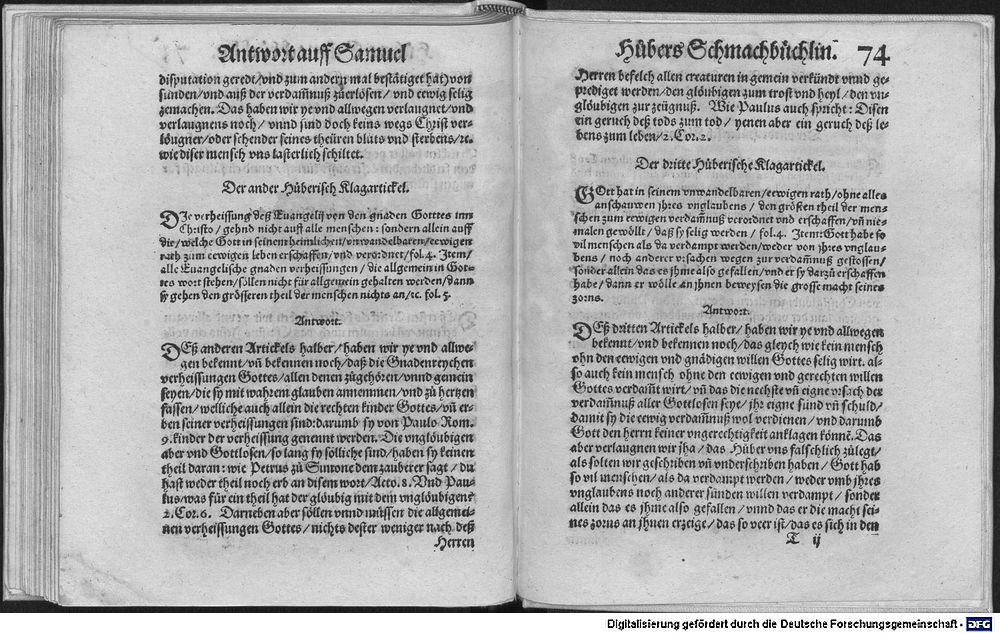 Antwort auff Samuel
disputation geredt/vnd zum andern mal bestätiget hat) von
sünden/vnd auß der verdamnuß zů erlösen/ vnd eewig selig
zemachen. Das haben wir ye vnd allwegen verlaugnet/vnd
verlaugnens noch/ vnnd sind doch keins wegs Christ ver-
löugner/oder schender seines theüren blůts vnd sterbens/ ꝛc.
wie diser mensch vns lasterlich schiltet.
Der ander Hüberisch Klagartickel.
DIe verheissung deß Euangelij von den gnaden Gotttes inn
Christo/ gehnd nicht auff alle menschen: sondern allein auff
die/welche Gott in seinem heimlichen/vnwandelbaren/eewigen
rath zum eewigen leben erschaffen/vnd verordnet/fol. 4. Item/
alle Euangelische gnaden verheissungen/ die allgemein in Got-
tes wort stehen/ söllen nicht für allgemein gehalten werden/dann
sy gehen den grösseren theil der menschen nichts an/ꝛc. fol. 5.
Antwort.
DEß anderen Artickels halber/ haben wir ye vnd allwe-
gen bekennt/ vñ bekennen noch/ daß die Gnadenreychen
verheissungen Gottes/ allen denen zůgehören/ vnnd gemein
seyen/ die sy mit warem glauben annemmen/ vnd zů hertzen
fassen/ welliche auch allein die rechten kinder Gottes/ vñ er-
ben seiner verheissungen sind: darumb sy von Paulo Rom.
9. kinder der verheissung genennt werden. Die vnglöubigen
aber vnd Gottlosen/ so lang sy sölliche sind/ haben sy keinen
theil daran: wie Petrus zů Simone dem zauberer sagt / du
hast weder theil noch erb an disem wort/ Acto. 8. Vnd Pau-
lus/ was für ein theil hat der glöubig mit dem vnglöubigen?
2. Cor. 6. Darneben aber söllen vnnd müssen die allgemei-
nen verheissungen Gottes/ nichts dester weniger nach deß
Herren
Hübers Schmachbüchlin. 74
Herren befelch allen creaturen in gemein verkündt vnnd ge-
prediget werden/den glöubigen zum trost vnd heyl/ den vn-
glöubigen zur zeügnuß. Wie Paulus auch spricht: Disen
ein geruch deß tods zum tod/ yenen aber ein geruch deß le-
bens zum leben/ 2. Cor. 2.
Der dritte Hüberische Klagartickel.
GOtt hat in seinem vnwandelbaren/eewigen rath/ohne alles
anschauwen jhres vnglaubens/ den grösten theil der men-
schen zum eewigen verdamnuß verordnet vnd erschaffen/vñ nie-
malen gewöllt/ daß sy selig werden/ fol. 4. Item: Gott habe so
vil menschen als da verdampt werden/weder von jhres vnglau-
bens/ noch anderer vrsachen wegen zur verdamnuß gestossen/
sonder allein das es jhme also gefallen/vnd er sy darzů erschaffen
habe/ dann er wölle an jhnen beweysen die grosse macht seines
zorns.
Antwort.
DEß dritten Artickels halber/ haben wir ye vnd allwegen
bekennt/vnd bekennen noch/das gleych wie kein mensch
ohn den eewigen vnd gnädigen willen Gottes selig wirt. al-
so auch kein mensch ohne den eewigen vnd gerechten willen
Gottes verdam̃t wirt/ vñ das die nechste vñ eigne vrsach der
verdamnuß aller Gottlosen seye/ jhr eigne sünd vñ schuld/
damit sy die eewig verdamnuß wol verdienen/ vnd darumb
Gott den herrn keiner vngerechtigkeit anklagen könnẽ. Das
aber verlaugnen wir jha/ das Hüber vns falschlich zůlegt/
als solten wir geschriben vñ vnderschriben haben/ Gott hab
so vil menschen/ als da verdampt werden/ weder vmb jhres
vnglaubens noch anderer sünden willen verdampt/ sonder
allein das es jhme also gefallen/ vnnd das er die macht sei-
nes zorns an jhnen erzeige/ das so veer ist/das es sich in den
T ij
Digitalisierung gefördert durch die Deutsche Forschungsgemeinschaft - DFG